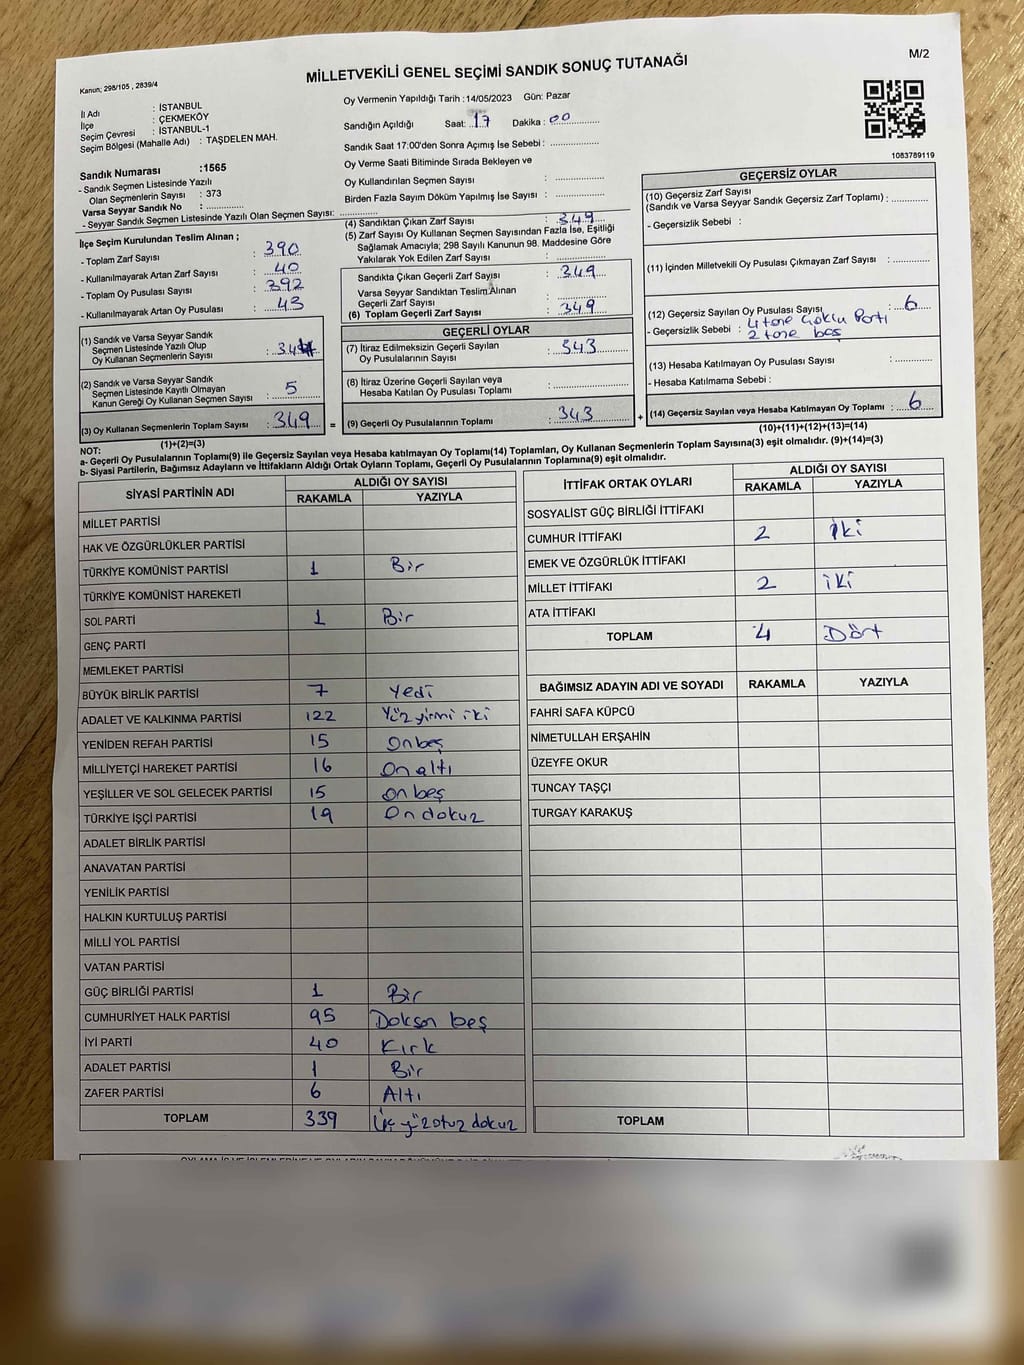 Kanun; 298/105 , 2839/4
MİLLETVEKİLİ GENEL SEÇİMİ SANDIK SONUÇ TUTANAĞI
M/2
İl Adı : İSTANBUL
İlçe : ÇEKMEKÖY
Seçim Çevresi : İSTANBUL-1
Seçim Bölgesi (Mahalle Adı) : TAŞDELEN MAH.
Sandık Numarası :1565
- Sandık Seçmen Listesinde Yazılı
Olan Seçmenlerin Sayısı : 373
Varsa Seyyar Sandık No :
- Seyyar Sandık Seçmen Listesinde Yazılı Olan Seçmen Sayısı:
Oy Vermenin Yapıldığı Tarih :14/05/2023 Gün: Pazar
Sandığın Açıldığı Saat: 17 Dakika : 00
Sandık Saat 17:00'den Sonra Açımış İse Sebebi :
Oy Verme Saati Bitiminde Sırada Bekleyen ve
Oy Kullandırılan Seçmen Sayısı :
Birden Fazla Sayım Döküm Yapılmış İse Sayısı :
1083789119
İlçe Seçim Kurulundan Teslim Alınan ;
- Toplam Zarf Sayısı : 390
- Kullanılmayarak Artan Zarf Sayısı : 40
- Toplam Oy Pusulası Sayısı : 392
- Kullanılmayarak Artan Oy Pusulası : 43
(1) Sandık ve Varsa Seyyar Sandık
Seçmen Listesinde Yazılı Olup
Oy Kullanan Seçmenlerin Sayısı : 344
(2) Sandık ve Varsa Seyyar Sandık
Seçmen Listesinde Kayıtlı Olmayan
Kanun Gereği Oy Kullanan Seçmen Sayısı : 5
(3) Oy Kullanan Seçmenlerin Toplam Sayısı : 349
(1)+(2)=(3)
(4) Sandıktan Çıkan Zarf Sayısı : 349
(5) Zarf Sayısı Oy Kullanan Seçmen Sayısından Fazla İse, Eşitliği
Sağlamak Amacıyla; 298 Sayılı Kanunun 98. Maddesine Göre
Yakılarak Yok Edilen Zarf Sayısı :
Sandıkta Çıkan Geçerli Zarf Sayısı : 349
Varsa Seyyar Sandıktan Teslim Alınan
Geçerli Zarf Sayısı :
(6) Toplam Geçerli Zarf Sayısı : 349
GEÇERLİ OYLAR
(7) İtiraz Edilmeksizin Geçerli Sayılan
Oy Pusulalarının Sayısı : 343
(8) İtiraz Üzerine Geçerli Sayılan veya
Hesaba Katılan Oy Pusulası Toplamı :
= (9) Geçerli Oy Pusulalarının Toplamı : 343
GEÇERSİZ OYLAR
(10) Geçersiz Zarf Sayısı
(Sandık ve Varsa Seyyar Sandık Geçersiz Zarf Toplamı) :
- Geçersizlik Sebebi :
(11) İçinden Milletvekili Oy Pusulası Çıkmayan Zarf Sayısı :
(12) Geçersiz Sayılan Oy Pusulası Sayısı : 6
- Geçersizlik Sebebi : 4 tane Çoklu Parti
2 tane boş
(13) Hesaba Katılmayan Oy Pusulası Sayısı :
- Hesaba Katılmama Sebebi :
+ (14) Geçersiz Sayılan veya Hesaba Katılmayan Oy Toplamı : 6
(10)+(11)+(12)+(13)=(14)
NOT:
a- Geçerli Oy Pusulalarının Toplamı(9) ile Geçersiz Sayılan veya Hesaba katılmayan Oy Toplamı(14) Toplamları, Oy Kullanan Seçmenlerin Toplam Sayısına(3) eşit olmalıdır. (9)+(14)=(3)
b- Siyasi Partilerin, Bağımsız Adayların ve İttifakların Aldığı Ortak Oyların Toplamı, Geçerli Oy Pusulalarının Toplamına(9) eşit olmalıdır.
SİYASİ PARTİNİN ADI ALDIĞI OY SAYISI
RAKAMLA YAZIYLA
MİLLET PARTİSİ
HAK VE ÖZGÜRLÜKLER PARTİSİ
TÜRKİYE KOMÜNİST PARTİSİ 1 Bir
TÜRKİYE KOMÜNİST HAREKETİ
SOL PARTİ 1 Bir
GENÇ PARTİ
MEMLEKET PARTİSİ
BÜYÜK BİRLİK PARTİSİ 7 Yedi
ADALET VE KALKINMA PARTİSİ 122 Yüz yirmi iki
YENİDEN REFAH PARTİSİ 15 Onbeş
MİLLİYETÇİ HAREKET PARTİSİ 16 On altı
YEŞİLLER VE SOL GELECEK PARTİSİ 15 on beş
TÜRKİYE İŞÇİ PARTİSİ 19 On dokuz
ADALET BİRLİK PARTİSİ
ANAVATAN PARTİSİ
YENİLİK PARTİSİ
HALKIN KURTULUŞ PARTİSİ
MİLLİ YOL PARTİSİ
VATAN PARTİSİ
GÜÇ BİRLİĞİ PARTİSİ 1 Bir
CUMHURİYET HALK PARTİSİ 95 Doksan beş
İYİ PARTİ 40 Kırk
ADALET PARTİSİ 1 Bir
ZAFER PARTİSİ 6 Altı
TOPLAM 339 Üç yüz otuz dokuz
İTTİFAK ORTAK OYLARI ALDIĞI OY SAYISI
RAKAMLA YAZIYLA
SOSYALİST GÜÇ BİRLİĞİ İTTİFAKI
CUMHUR İTTİFAKI 2 İki
EMEK VE ÖZGÜRLÜK İTTİFAKI
MİLLET İTTİFAKI 2 iki
ATA İTTİFAKI
TOPLAM 4 Dört
BAĞIMSIZ ADAYIN ADI VE SOYADI RAKAMLA YAZIYLA
FAHRİ SAFA KÜPCÜ
NİMETULLAH ERŞAHİN
ÜZEYFE OKUR
TUNCAY TAŞÇI
TURGAY KARAKUŞ
TOPLAM